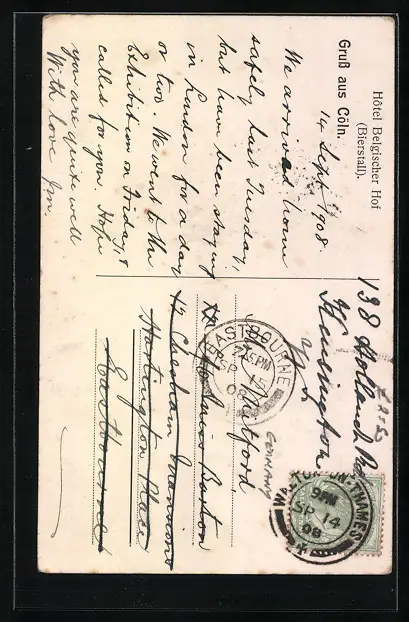 Hôtel Belgischer Hof
(Bierstall).
Gruß aus Cöln.
14 Sept 1908.
We arrived home
safely last Tuesday,
but have been staying
in London for a day
or two. We went to the
Exhibition on Friday, &
called for you. Hope
you are quite well
With love Jim.
138 Holland Rd
Kensington
W
Hartford,
Miss Burton
17 Chesham Mansions
Hartington Place
Eastbourne
EASTBOURNE
SP 15
08
WALTON-ON-THAMES
9 PM
SP 14
08
GERMANY